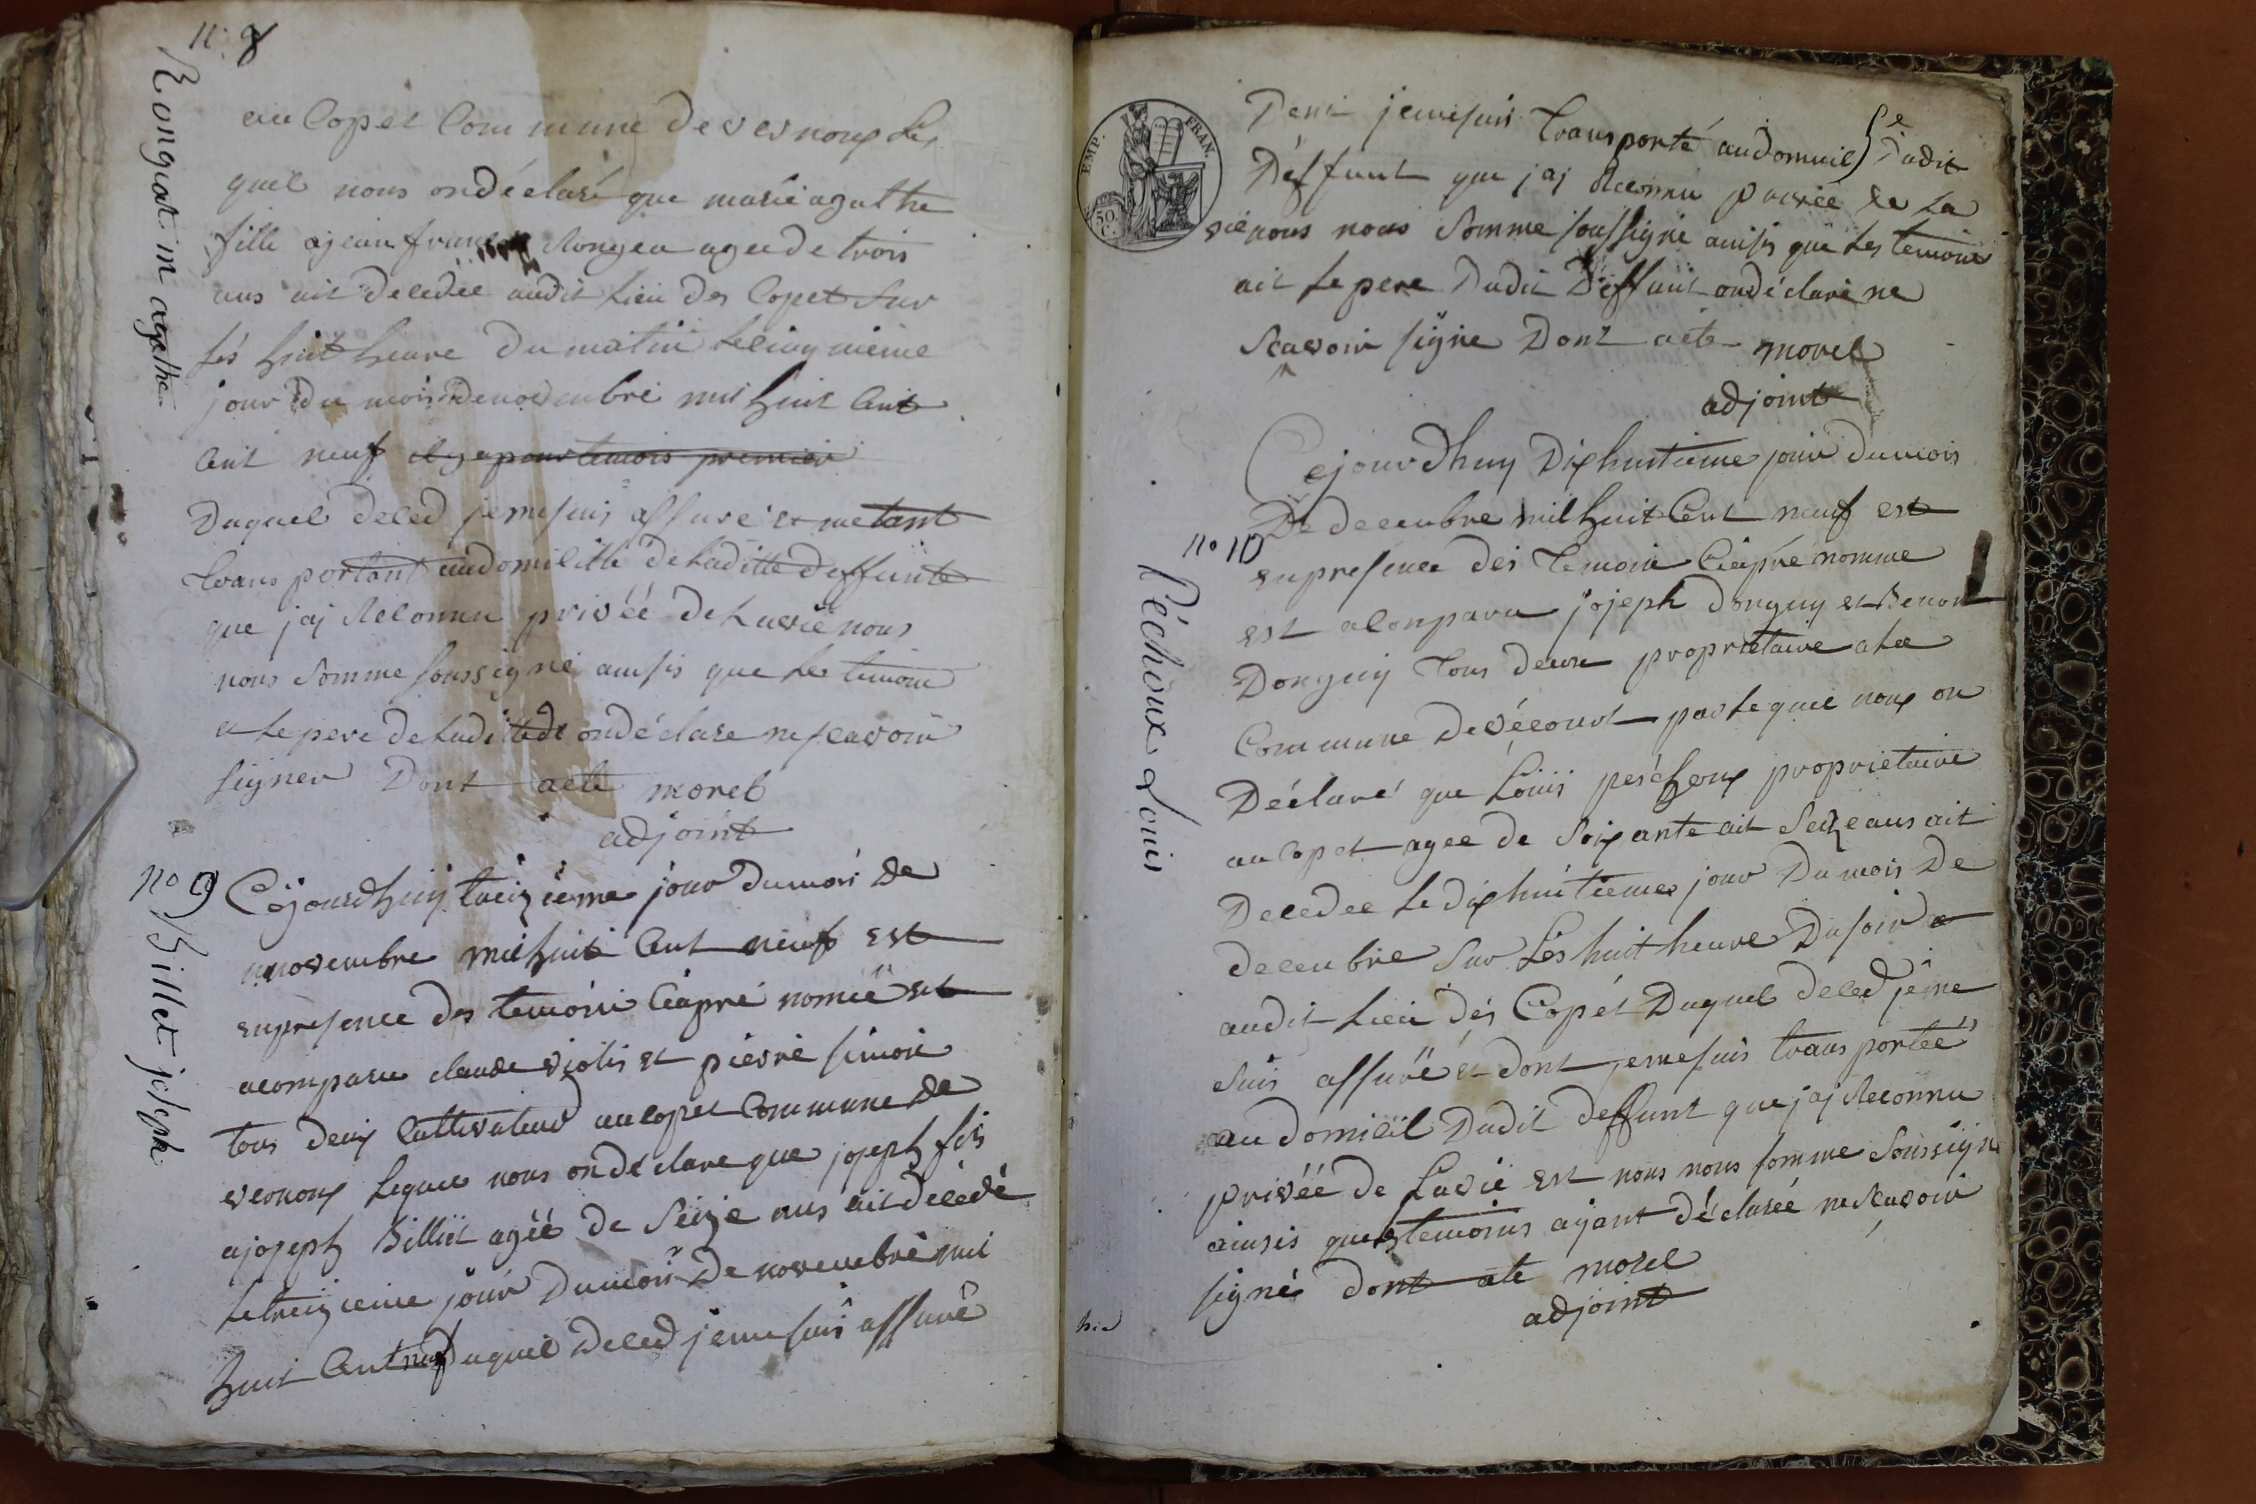 n: 8
Rongiat m agathe
au Copet Commune de vernoux les
quel nous ondéclaré que marie agathe
fille ajean françois Rongea agee de trois
ans ait decedée audit Lieu des Copet Sur
lés huit heure du matin le cinquieme
jour du mois de novembre mil huit Cent
Cent neuf il y a pour temois premier
Duquel deced jemesuis assuré et me tant
transportant audomicille de Laditte deffunte
que jaj Reconnu privéé de La vie nous
nous Somme soussigne ainsis que les temoin
u le pere de Laditte de ondéclare ne scavoir
signer Dont acte morel
adjoint
no 9
Billet joseph
Cejourdhuy treizieme jour dumois de
novembre mil huit Cent neuf est
enpresence des temoin Ciapré nomée est
acomparu claude violis et pierre simon
tous deux Cultivateur au copet Commune de
vernoux lequel nous on déclare que joseph fis
ajoseph Billiet agéé de Seize ans ait décédé
le treizieme jour Dumois De novembre mil
huit Cent neuf duquel deced jeme suis assuré
EMP. FRAN.
50 C.
Dent jemesuis transporté audomicil dudit
Déffunt que jaj Reconnu privée de La
vie nous nous Somme soussigné ainsis que les temoin
ait le pere Dudit Deffunt ondéclaré ne
Scavoir signe Dont acte morel
adjoint
no 10
Péchoux Louis
Cejourdhuy Dixhuitieme jour dumois
De decembre mil huit Cent neuf est
enpresence des temoin Ciapré nomme
est acomparu joseph donguy et Benoit
Donguy tous deux proprietaire a la
Commune de vécourt par lequel nous on
Déclaré que Louis peschoux proprietaire
au Copet agee de Soixante ait Seize ans ait
Decedee le dixhuitieme jour Du mois De
decembre Sur Lés huit heure Du soir
audit Lieu dés Copét Duquel deced jeme
Suis assuré et dont jemesuis transportée
au domicil Dudit deffunt que jaj Reconnu
privéé de Lavie est nous nous somme Soussigne
ainsis que les temoins ajant déclaréé ne Scavoir
signé dont acte morel
adjoint